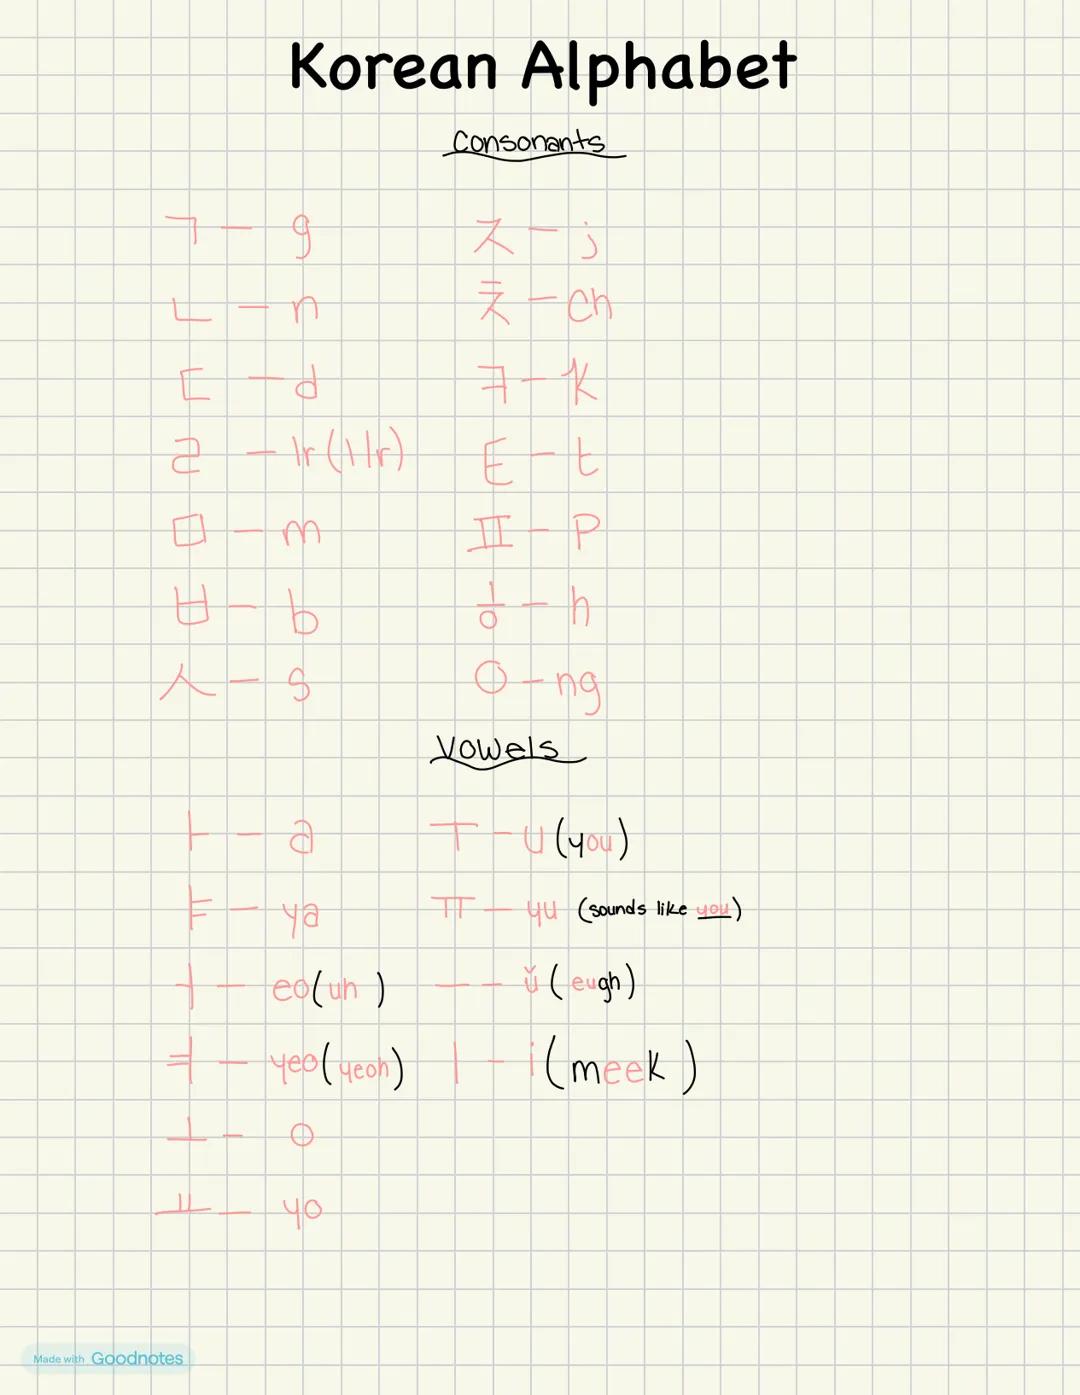 Korean Alphabet
Consonants
ㄱ — g
ㄴ — n
ㄷ — d
ㄹ — lr (l lr)
ㅁ — m
ㅂ — b
ㅅ — s
ㅈ — j
ㅊ — ch
ㅋ — k
ㅌ — t
ㅍ — p
ㅎ — h
ㅇ — ng
Vowels
ㅏ — a
ㅑ — ya
ㅓ — eo (uh)
ㅕ — yeo (yeoh)
ㅗ — o
ㅛ — yo
ㅜ — u (you)
ㅠ — yu (sounds like you)
ㅡ — ŭ (eugh)
ㅣ — i (meek)
Made with Goodnotes